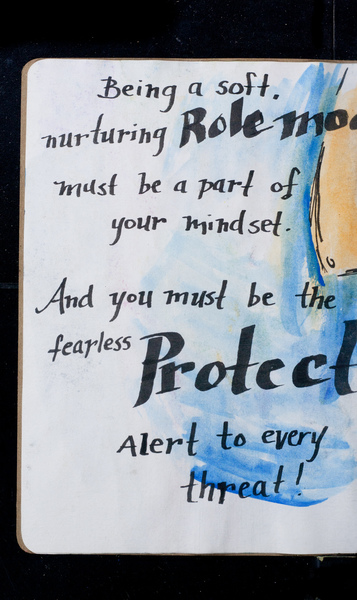 Being a soft,
nurturing Role mo
must be a part of
your mindset.
And you must be the
fearless Protect
Alert to every
threat!